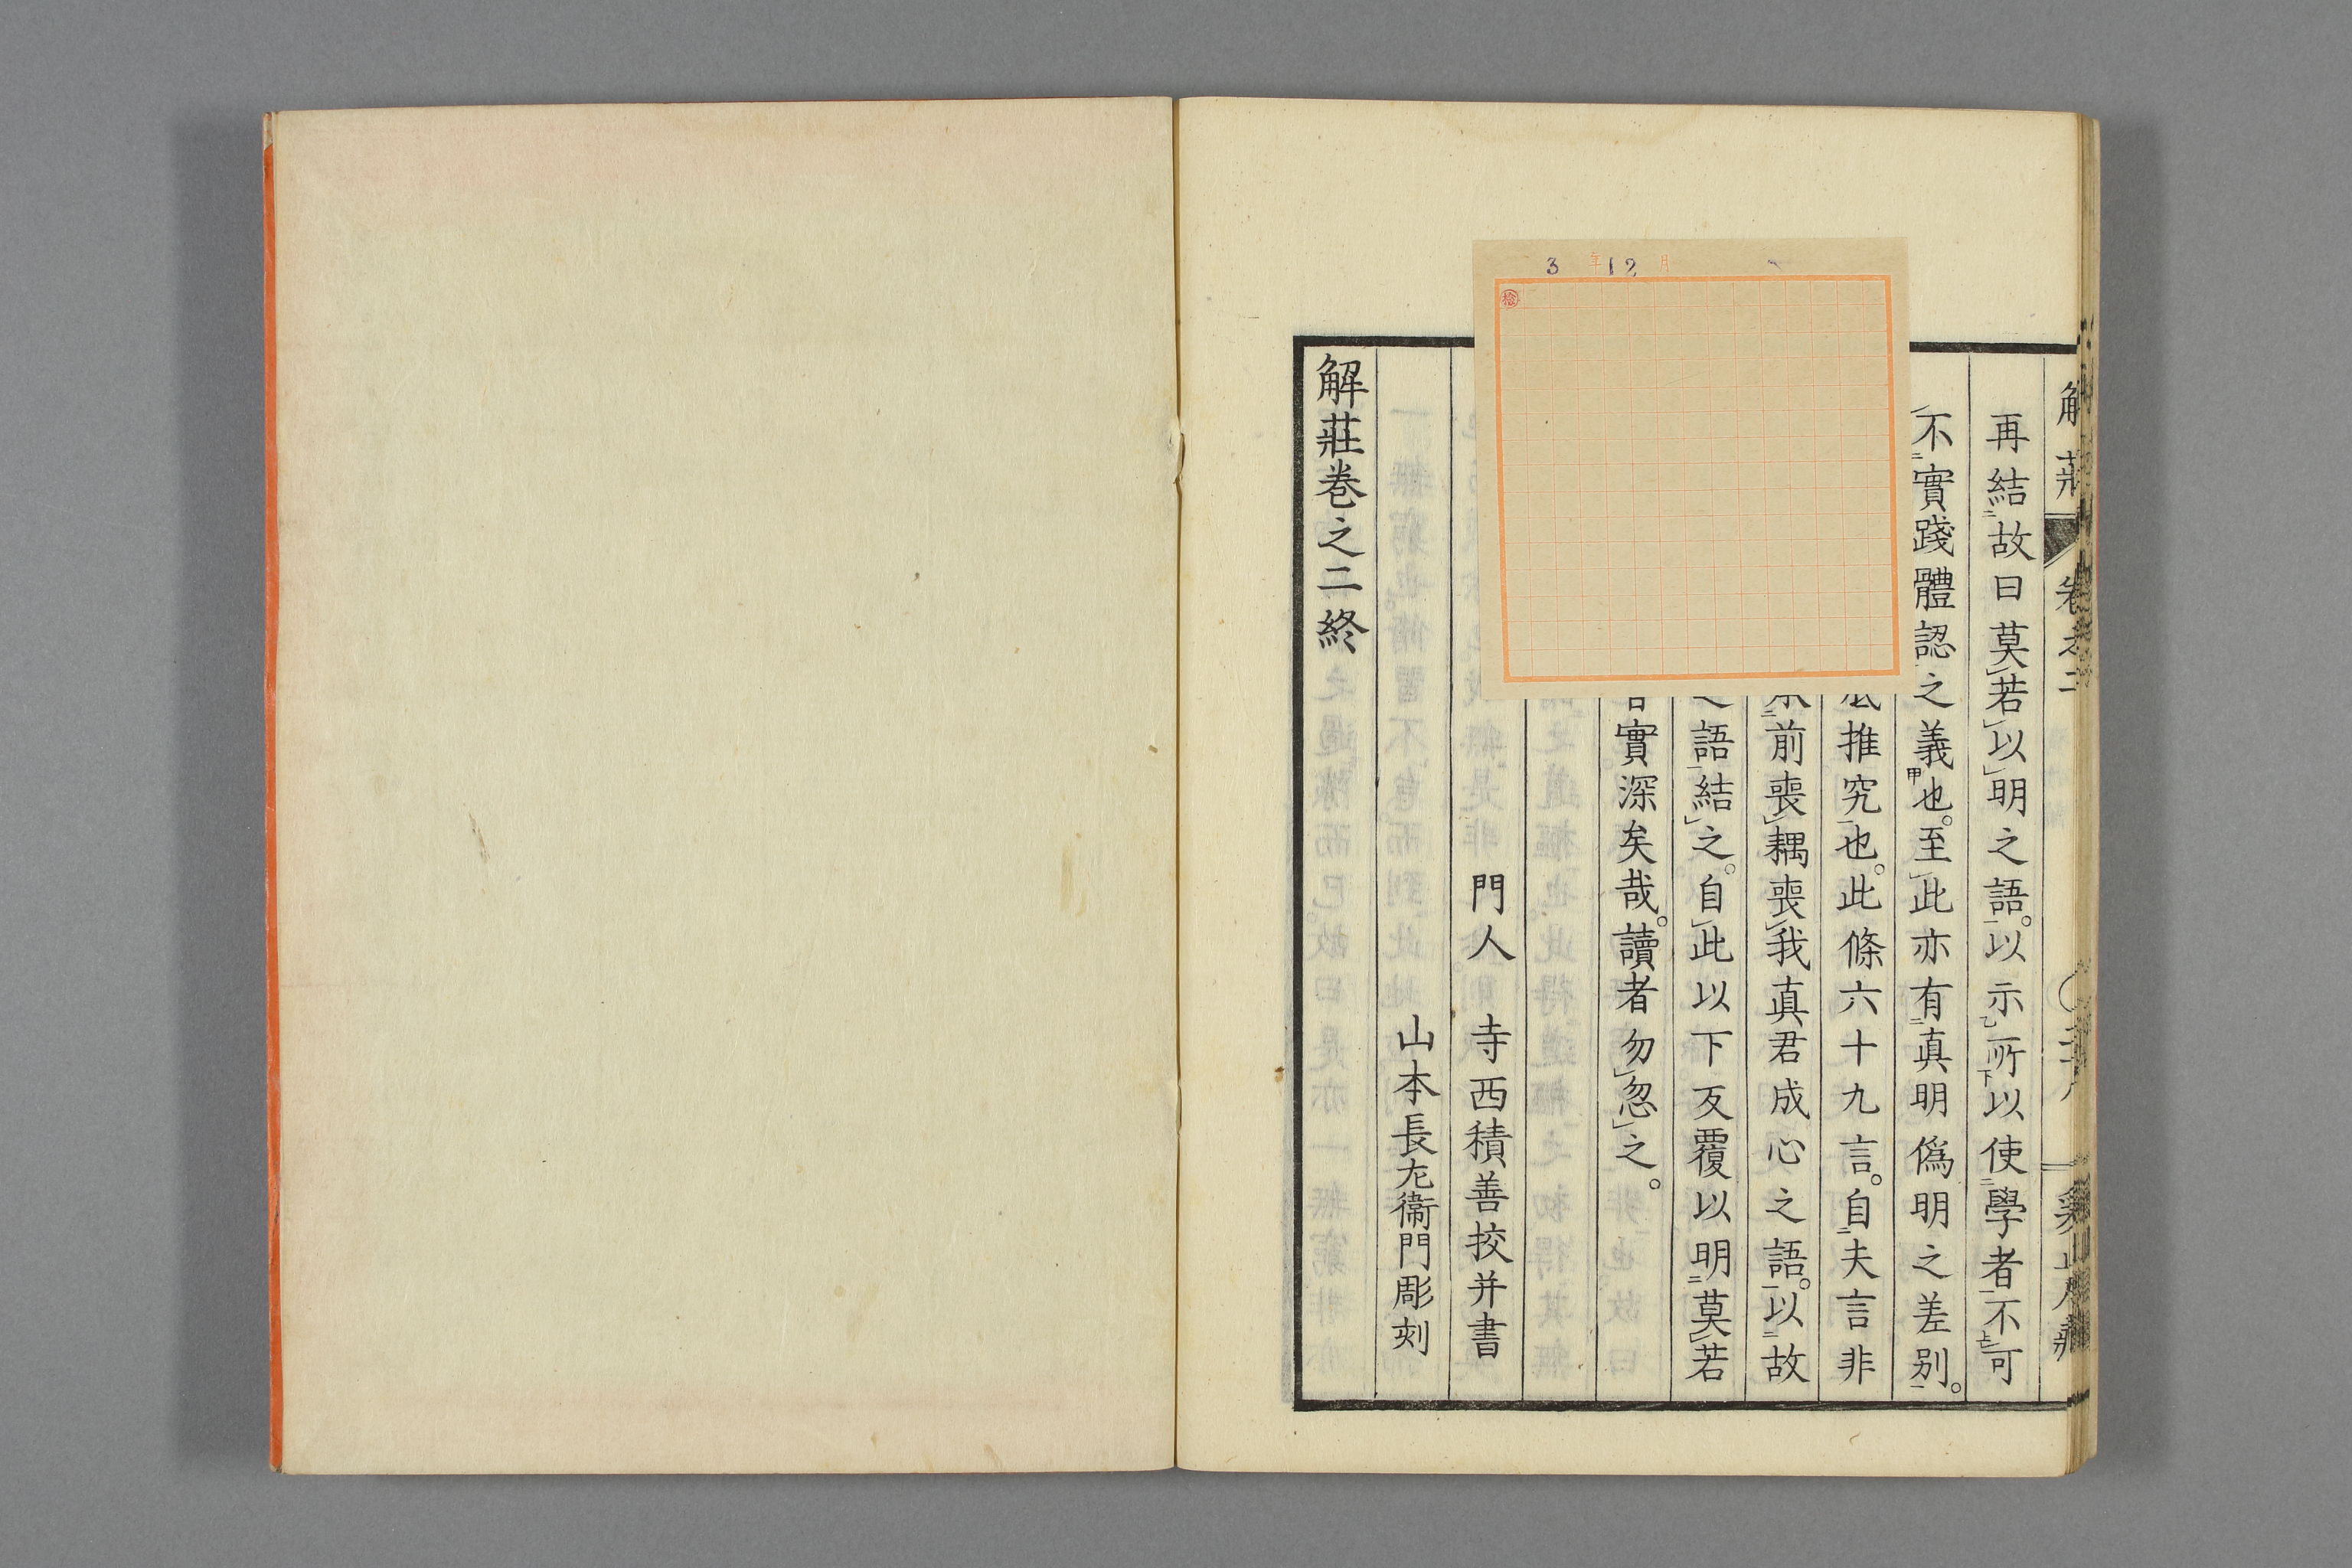 再結故曰莫若以明之語。以示所以使學者不可
不實踐體認之義也。至此亦有真明僞明之差別。
推究也。此條六十九言。自夫言非
前喪耦喪我真君成心之語。以故
語結之。自此以下反覆以明莫若
實深矣哉。讀者勿忽之。
門人 寺西積善挍并書
山本長左衞門彫刻
解莊卷之二終
3年12月
檢